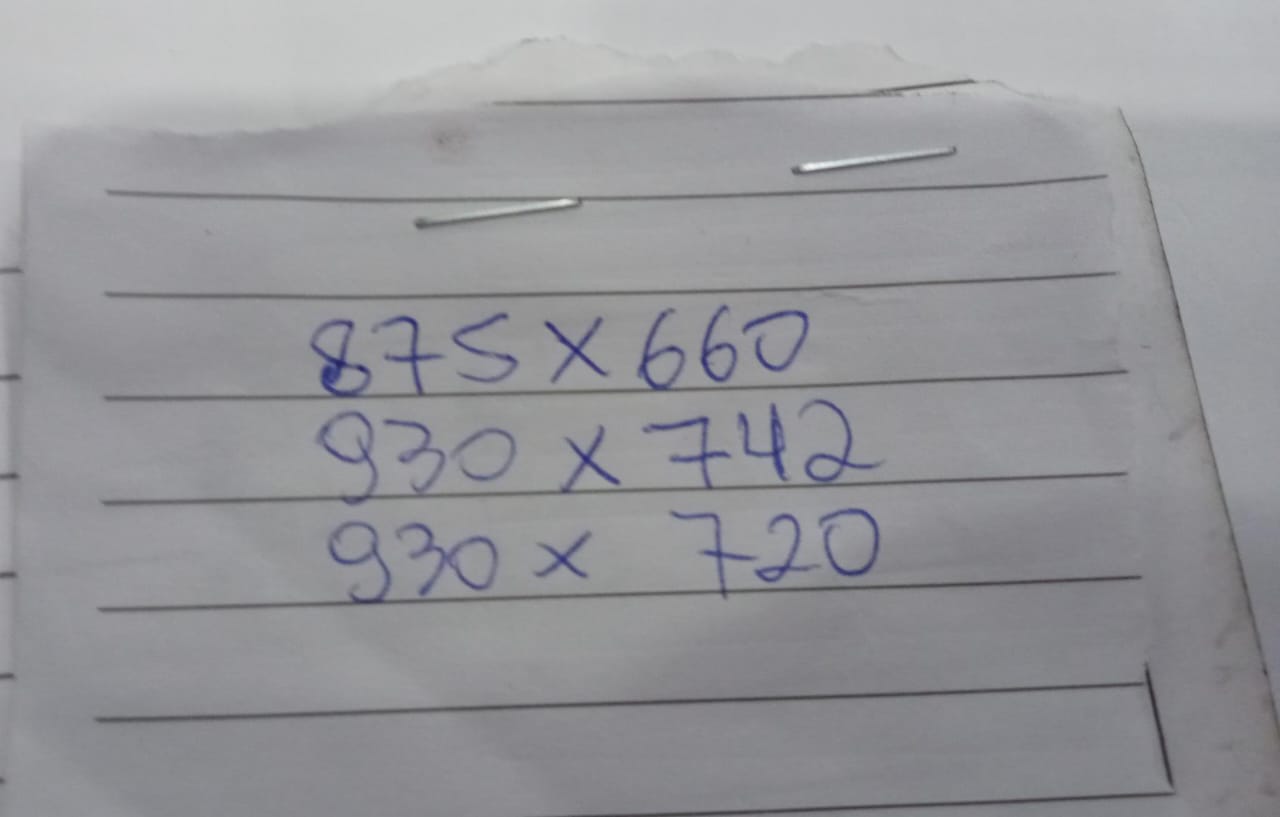 875 x 660
930 x 742
930 x 720